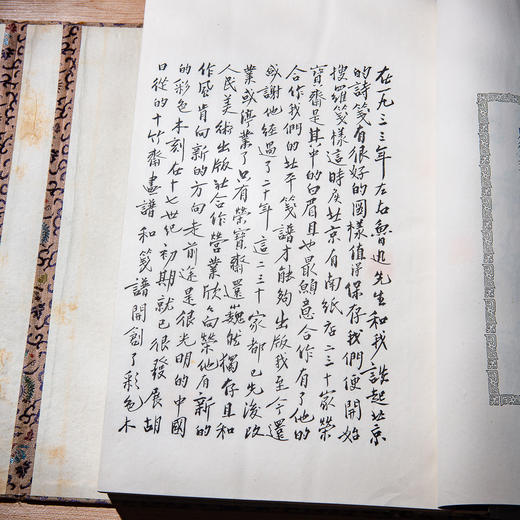 在一九三三年左右魯迅先生和我談起北京
的詩笺有很好的圖樣值得保存我們便開始
搜羅笺樣這時候北京有南紙店二三十家榮
寳齋是其中的白眉且也最願意合作有了他的
合作我們的北平笺譜才能夠出版我至今還
感謝他經過了二十年這二三十家都已先後改
業或停業了只有榮寳齋還巍然獨存且和
人民美術出版社合作營業欣欣向榮他有新的
作風肯向新的方向走前途是很光明的中國
的彩色木刻在十七世紀初期就已很發展胡
曰從的十竹齋畫譜和笺譜開創了彩色木